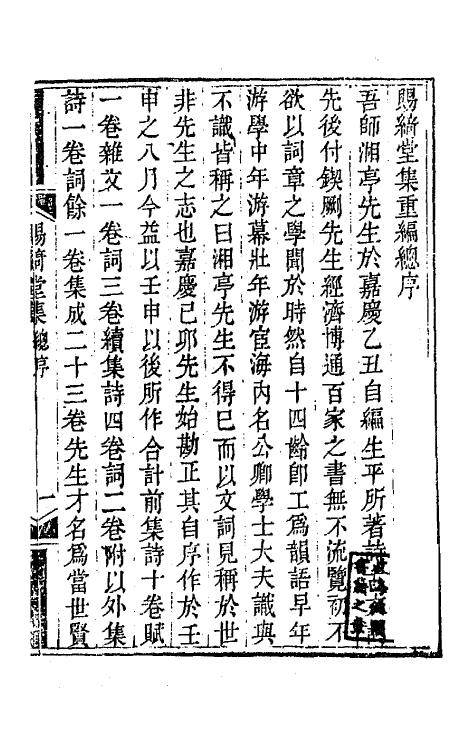 賜綺堂集重編總序
吾師湘亭先生於嘉慶乙丑自編生平所著詩
先後付鍥劂先生經濟博通百家之書無不流覽初不
欲以詞章之學聞於時然自十四齡卽工爲韻語早年
游學中年游幕壯年游宦海内名公卿學士大夫識與
不識皆稱之曰湘亭先生不得已而以文詞見稱於世
非先生之志也嘉慶己卯先生始勘正其自序作於壬
申之八月今益以壬申以後所作合計前集詩十卷賦
一卷雜文一卷詞三卷續集詩四卷詞二卷附以外集
詩一卷詞餘一卷集成二十三卷先生才名爲當世賢
賜綺堂集 總序 一